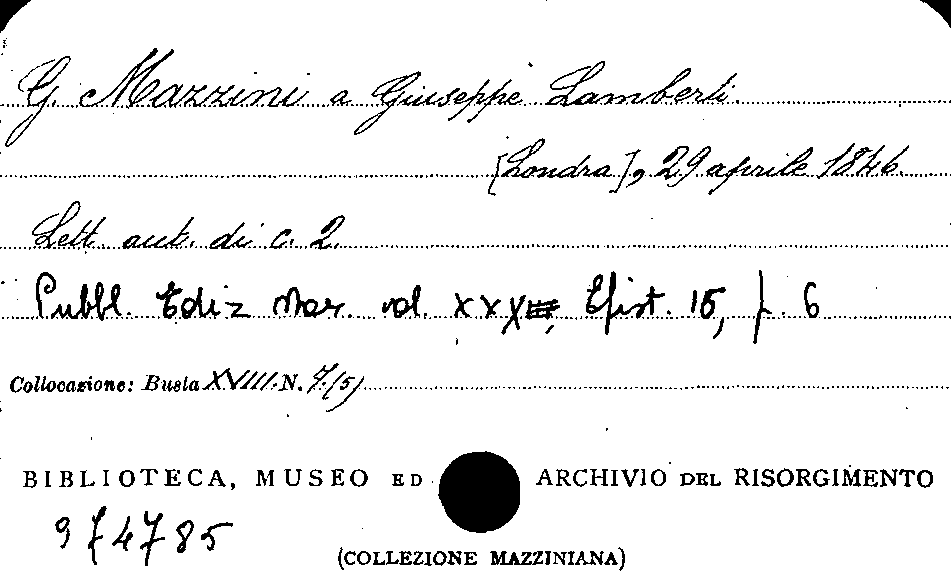 G. Mazzini a Giuseppe Lamberti.
[Londra], 29 aprile 1846.
Lett. aut. di c. 2.
Pubbl. Ediz Naz. vol. Epist. 15, p. 6
Collocazione: Busta XVIII. N. 7.(5)
BIBLIOTECA, MUSEO ED ARCHIVIO DEL RISORGIMENTO
974785
(COLLEZIONE MAZZINIANA)